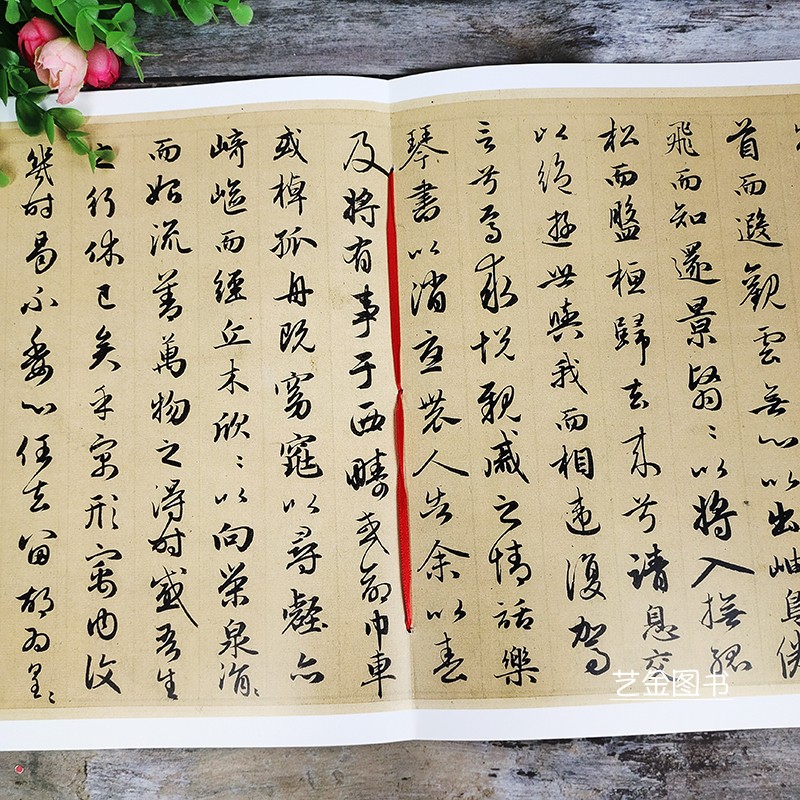 首而遐觀雲無心以出岫鳥倦
飛而知還景翳〻以將入撫孤
松而盤桓歸去來兮請息交
以絕遊世與我而相違復駕
言兮焉求悅親戚之情話樂
琴書以消憂農人告余以春
及將有事于西疇或命巾車
或棹孤舟既窈窕以尋壑亦
崎嶇而經丘木欣〻以向榮泉涓〻
而始流善萬物之得時感吾生
之行休已矣乎寓形寓内復
幾時曷不委心任去留胡為皇〻
艺金图书